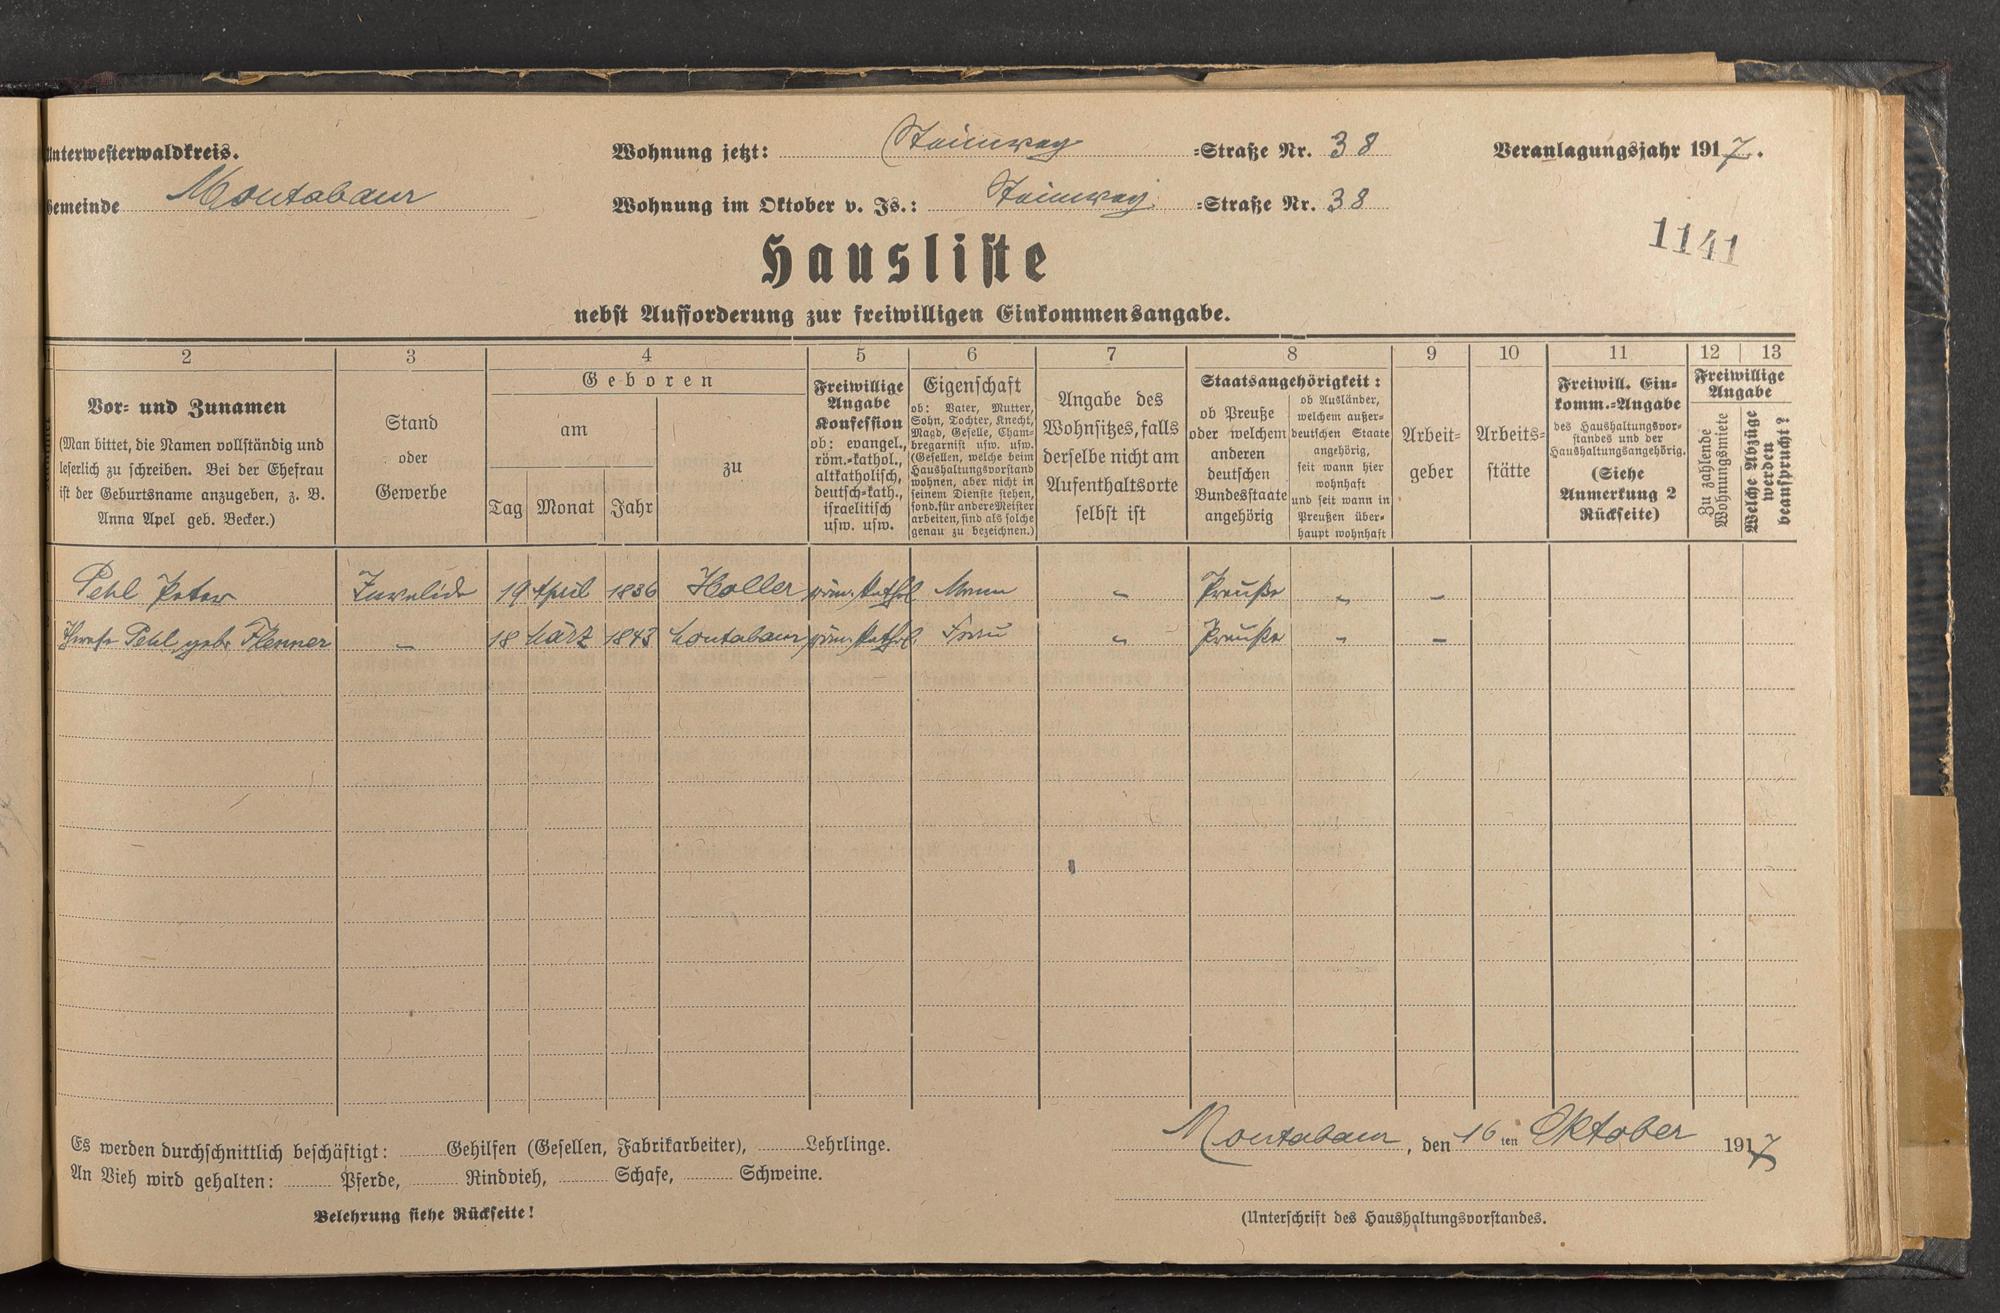 Unterwesterwaldkreis.
Wohnung jetzt: Steinweg =Straße Nr. 38
Veranlagungsjahr 1917.
Gemeinde Montabaur
Wohnung im Oktober v. Js.: Steinweg =Straße Nr. 38
1141
Hausliste
nebst Aufforderung zur freiwilligen Einkommensangabe.
2
3
4
5
6
7
8
9
10
11
12
13
Vor- und Zunamen
(Man bittet, die Namen vollständig und
leserlich zu schreiben. Bei der Ehefrau
ist der Geburtsname anzugeben, z. B.
Anna Apel geb. Becker.)
Stand
oder
Gewerbe
Geboren
am
Tag
Monat
Jahr
zu
Freiwillige
Angabe
Konfession
ob: evangel.,
röm.-kathol.,
altkatholisch,
deutsch-kath.,
israelitisch
usw. usw.
Eigenschaft
ob: Vater, Mutter,
Sohn, Tochter, Knecht,
Magd, Geselle, Cham-
bregarnist usw. usw.
(Gesellen, welche beim
Haushaltungsvorstand
wohnen, aber nicht in
seinem Dienste stehen,
sond. für andere Meister
arbeiten, sind als solche
genau zu bezeichnen.)
Angabe des
Wohnsitzes, falls
derselbe nicht am
Aufenthaltsorte
selbst ist
Staatsangehörigkeit:
ob Preuße
oder welchem
anderen
deutschen
Bundesstaate
angehörig
ob Ausländer,
welchem außer-
deutschen Staate
angehörig,
seit wann hier
wohnhaft
und seit wann in
Preußen über-
haupt wohnhaft
Arbeit-
geber
Arbeits-
stätte
Freiwill. Ein-
komm.-Angabe
des Haushaltungsvor-
standes und der
Haushaltungsangehörig.
(Siehe
Anmerkung 2
Rückseite)
Freiwillige
Angabe
Zu zahlende
Wohnungsmiete
Welche Abzüge
werden
beansprucht?
Pehl Peter Invalide 19 April 1836 Holler röm. kathol Mann " Preuße " –
Pehl, geb. Flenner – 18 März 1843 Montabaur röm. kathol. Frau " Preuße " –
Es werden durchschnittlich beschäftigt: Gehilfen (Gesellen, Fabrikarbeiter), Lehrlinge.
An Vieh wird gehalten: Pferde, Rindvieh, Schafe, Schweine.
Belehrung siehe Rückseite!
Montabaur, den 16ten Oktober 1917
(Unterschrift des Haushaltungsvorstandes.